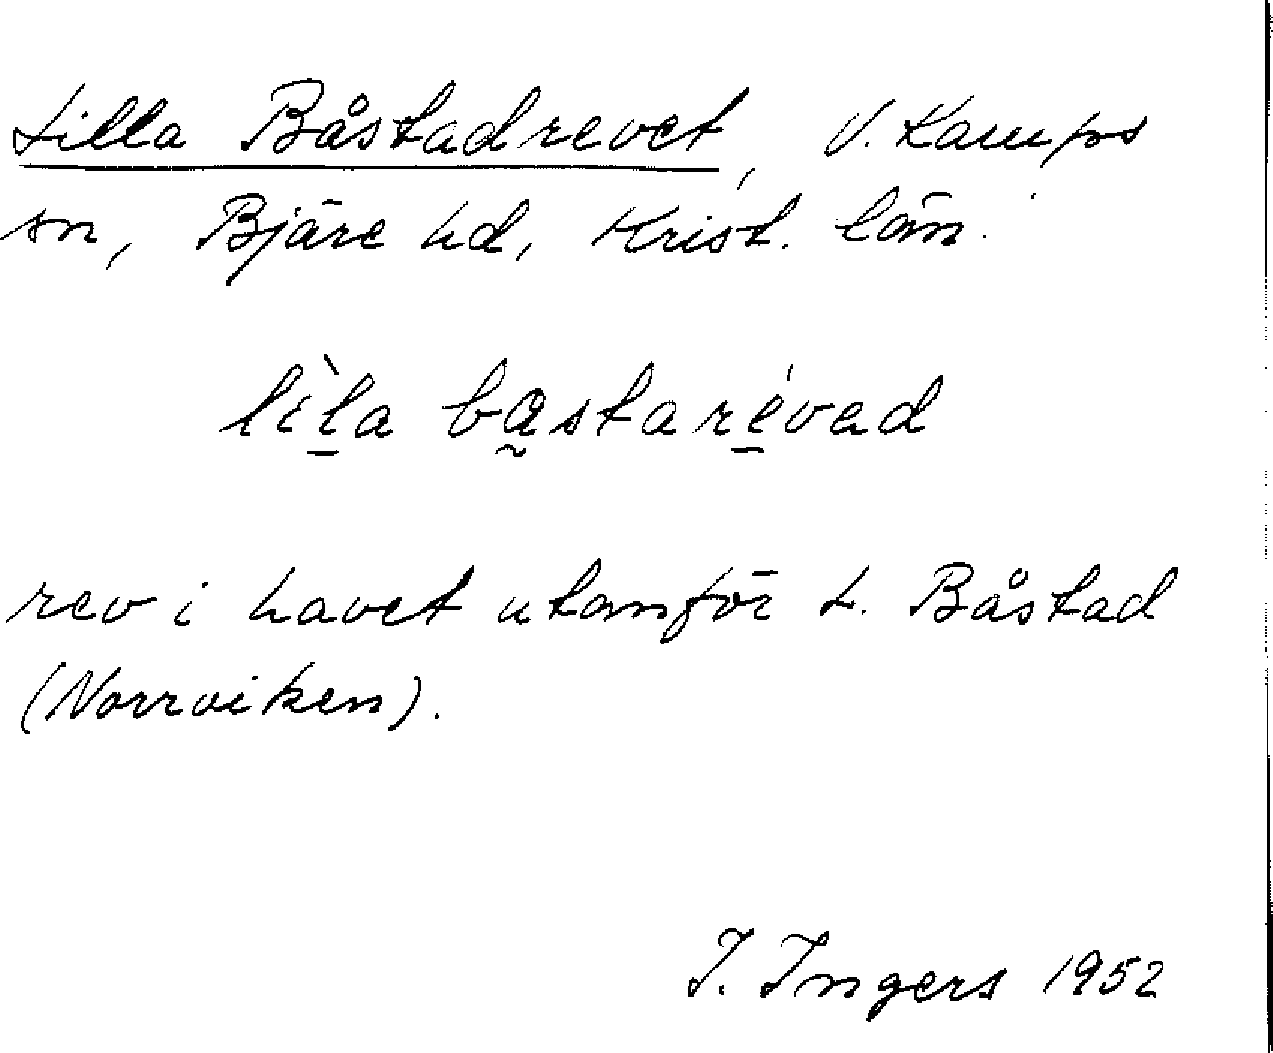 Lilla Båstadrevet, V. Karups
sn, Bjäre hd, Krist. län.
lìla bastarévad
rev i havet utanför L. Båstad
(Norrviken).
I. Ingers 1952